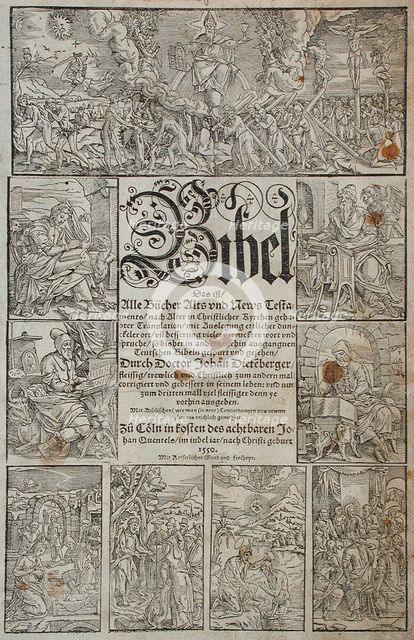 Bibel
Das ist/
Alle Bücher Alts vnd News Testa-
ments/ nach Alter in Christlicher Kyrchen geha-
bter Translation/ mit Auslegung etlicher dun-
ckeler ort/ vnd besserung vieler verruckten wort vnd
sprüche/ so bißher in andern
ausgangnen
Teutschen Bibeln gespürt vnd gesehen/
Durch Doctor Johan Dietēberger/
fleissig/ trewlich vnd Christlich zum andern mal
corrigiert vnd gebessert in seinem leben: vnd nun
zum dritten mall viel fleissiger denn ye
vorhin ausgeben.
Mit Biblischen/ wie man sie nent/ Concordantzen vor newem
reichlich
Zů Cöln in kosten des achtbaren Jo-
han Quentels/ im iubel iar/ nach Christi geburt
1550.
Mit Keiserlicher Gnad vnd freiheyt.
heritage